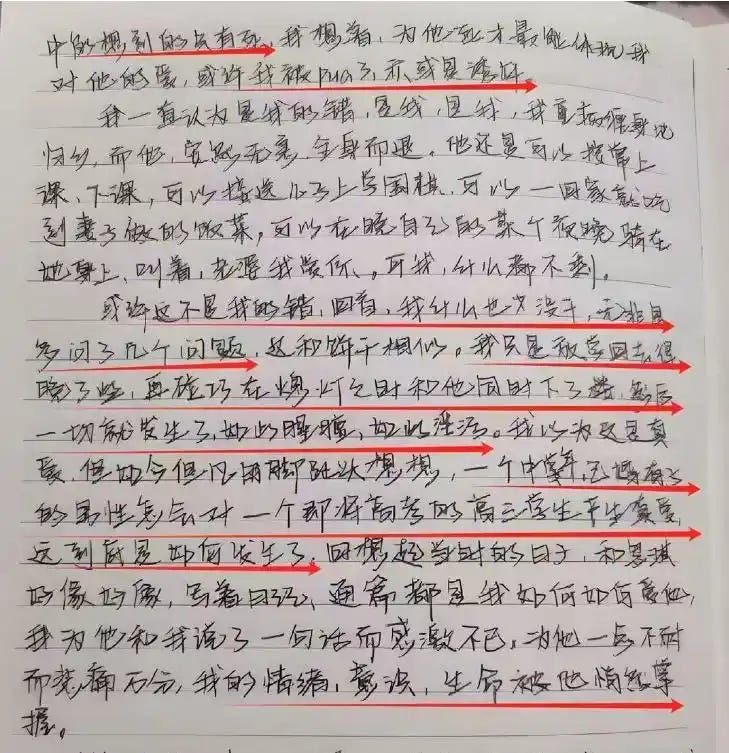 中的想到的只有死,我想着,为他死才最能体现我
对他的爱,或许我被pua了,亦或是洗脑。
我一直认为是我的错,是我,是我,我重病缠身地
归乡,而他,安然无恙,全身而退。他还是可以接常上
课、下课,可以接送儿子上学围棋,可以一回家就吃
到妻子做的饭菜,可以在晚自习的某个夜晚骑在
她身上,叫着,老婆我爱你,可我,什么都不剩。
或许这不是我的错,回首,我什么也没干,无非是
多问了几个问题,这和饼干相似。我只是放学回去得
晚了些,再碰巧在熄灯之时和他同时下了楼,然后
一切就发生了,如此腥膻,如此淫污。我以为这是真
爱,但如今但凡用脚趾头想想,一个中年已婚有子
的男性怎会对一个即将高考的高三学生产生真爱,
这到底是如何发生了,回想起当时的日子,和思琪
好像好像,写着日记,通篇都是我如何如何爱他,
我为他和我说了一句话而感激不已,为他一点不耐
而悲痛万分,我的情绪,意识,生命被他悄然掌
握。